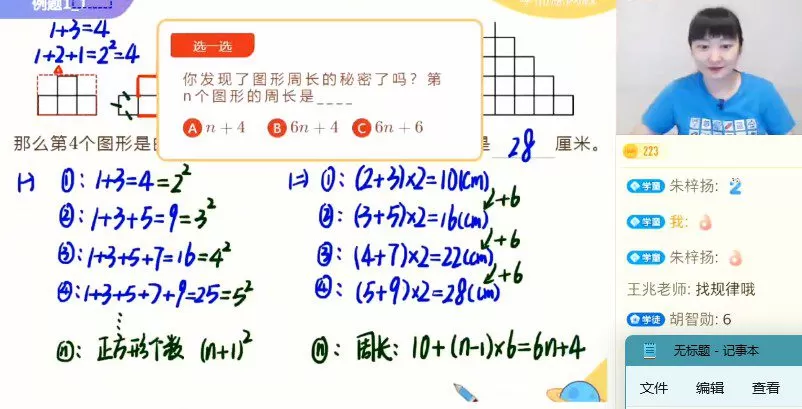 例题1_1
1+3=4
1+2+1=2²=4
选一选
你发现了图形周长的秘密了吗？第
n个图形的周长是____
A n + 4 B 6n + 4 C 6n + 6
那么第4个图形是
是 28 厘米。
(一) ①: 1+3=4=2²
②: 1+3+5=9=3²
③: 1+3+5+7=16=4²
④: 1+3+5+7+9=25=5²
⋮
ⓝ: 正方形个数 (n+1)²
(二) ①: (2+3)×2=10(cm)
+6
②: (3+5)×2=16(cm)
+6
③: (4+7)×2=22(cm)
+6
④: (5+9)×2=28(cm)
ⓝ: 周长: 10+(n-1)×6=6n+4
223
学童 朱梓扬:
学童 我:
学童 朱梓扬:
王兆老师: 找规律哦
学徒 胡智勋: 6
无标题 - 记事本
文件 编辑 查看